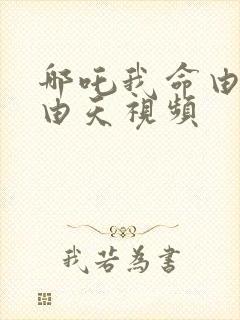 哪吒我命由
由天視頻
我若為書